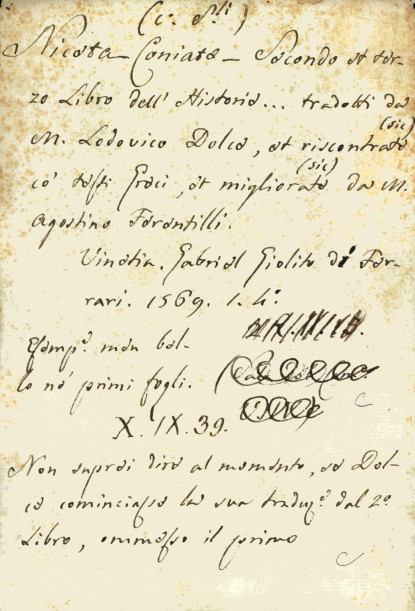 (c. S.li)
Niceta Coniate – Secondo et ter-
zo Libro dell' Historie... tradotti da
(sic)
M. Lodovico Dolce, et riscontrate
(sic)
co' testi Greci, et migliorate da M.
Agostino Ferentilli.
Vinetia. Gabriel Giolito di Fer-
rari. 1569. 1. 4°.
Esemp.e men bel-
lo ne' primi fogli. (
X. IX. 39.
Non saprei dire al momento, se Dol-
ce cominciasse la sua traduz.e dal 2°.
Libro, ommesso il primo